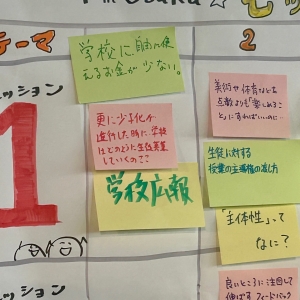 テーマ
2
ッション
1
ッション
学校に自由に使
えるお金が少ない。
更に少子化が
進行した時に学校
はどのように生徒募集
していくのか?
学校広報
美術や体育なども
点数よりも「楽しめるこ
と」にすればいいのに…
生徒に対する
授業の主導権の渡し方
「主体性」って
なに?
良いところに注目して
伸ばす フィードバック